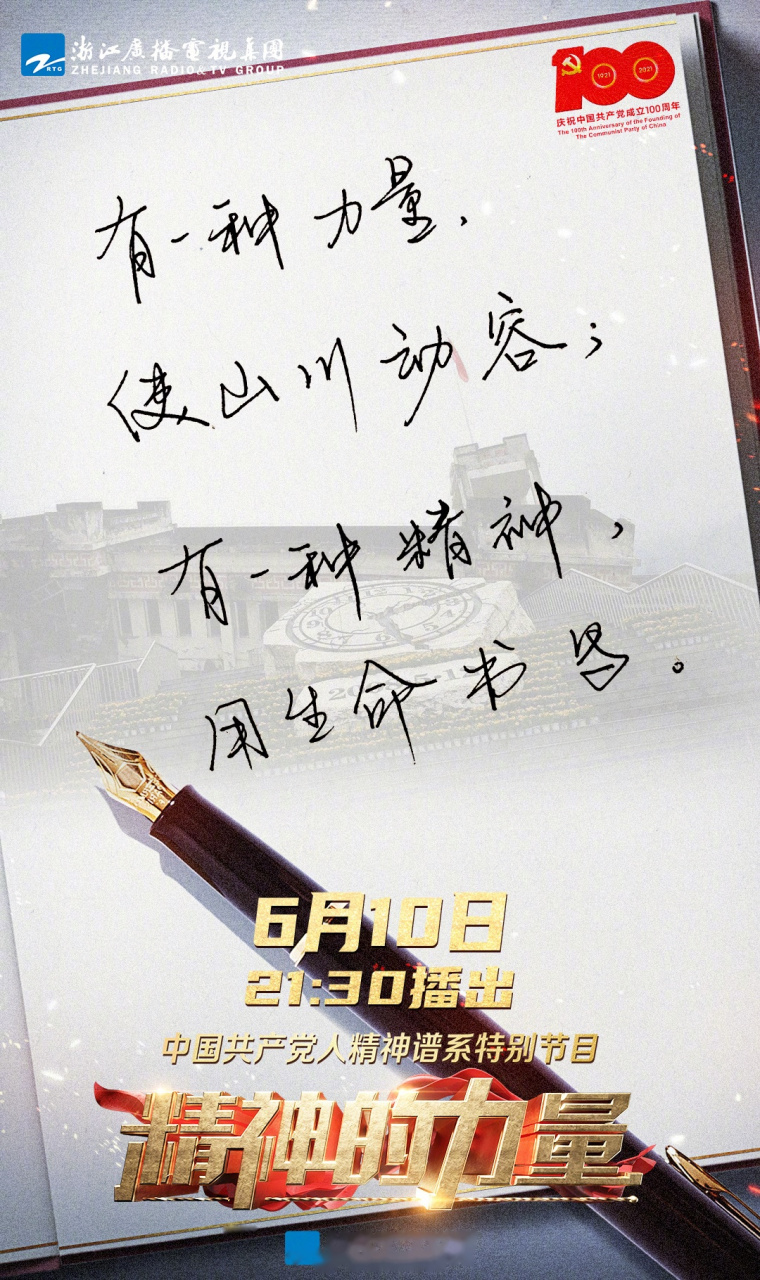 浙江廣播電視集團
RTG ZHEJIANG RADIO&TV GROUP
100
1921 2021
庆祝中国共产党成立100周年
The 100th Anniversary of the Founding of
The Communist Party of China
有一种力量，
使山川动容；
有一种精神，
用生命书写。
6月10日
21:30播出
中国共产党人精神谱系特别节目
精神的力量